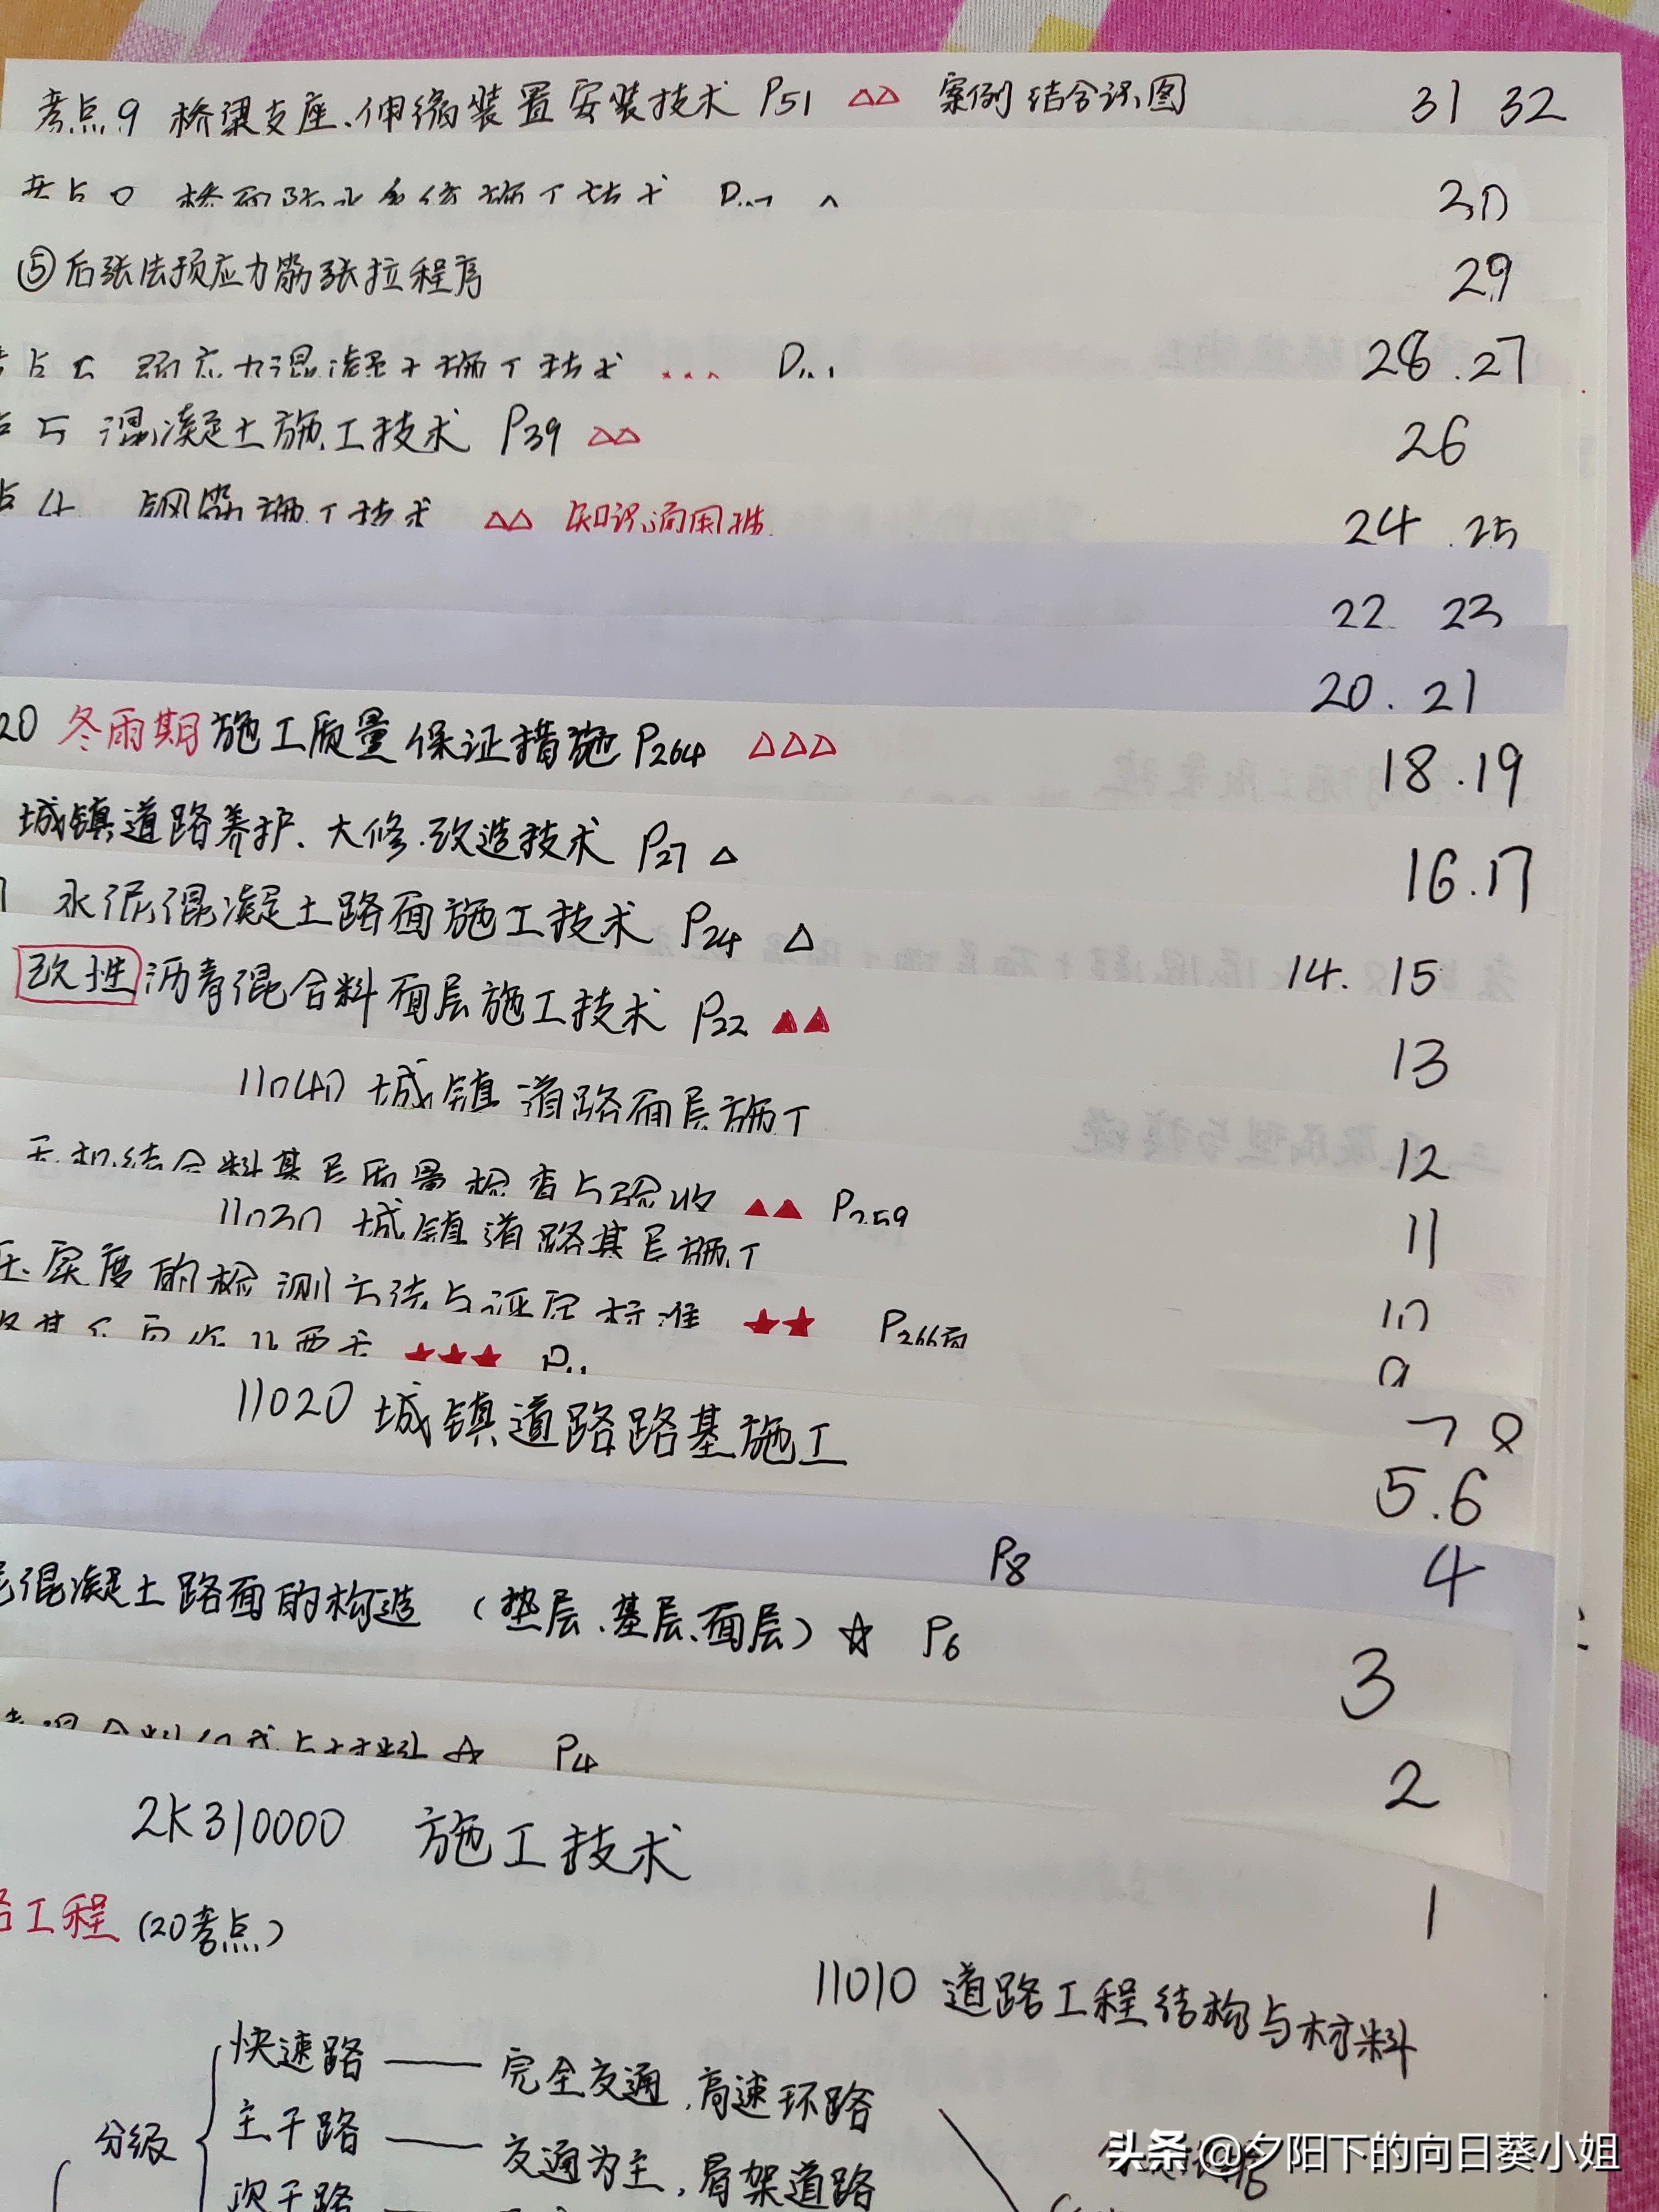 考点9 桥梁支座、伸缩装置安装技术 P51 △△ 案例结合识图 31 32
30
⑤后张法预应力筋张拉程序 29
预应力混凝土施工技术 28.27
点5 混凝土施工技术 P39 △△ 26
点4 钢筋施工技术 △△ 知识通用性 24.25
22 23
20.21
20 冬雨期施工质量保证措施 P264 △△△ 18.19
城镇道路养护、大修.改造技术 P27 △ 16.17
水泥混凝土路面施工技术 P24 △
14. 15
改性沥青混合料面层施工技术 P22 ▲▲ 13
11040 城镇道路面层施工 12
无机结合料基层质量检查与验收 ▲▲ P259
11030 城镇道路基层施工 11
压实度的检测方法与评定标准 ★★ P266 10
★★★ 9
11020 城镇道路路基施工 7 8
5.6
P8 4
混凝土路面的构造 (垫层、基层、面层) ☆ P6 3
混合料组成与材料 ☆ P4 2
2K310000 施工技术
1
路工程 (20考点)
11010 道路工程结构与材料
分级
快速路 —— 完全交通,高速环路
主干路 —— 交通为主,肩架道路
次干路
头条 @夕阳下的向日葵小姐